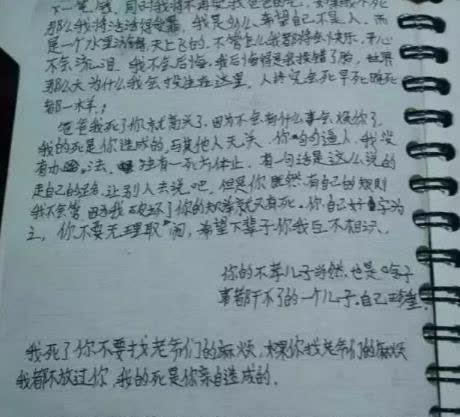 那么我将活活得受罪，我是多么希望自己不是人，而
是一个水里游的，天上飞的，不管怎么我都将会快乐，开心
不会流泪，我不会后悔，我后悔得是我投错了胎，世界
那么大为什么我会投生在这里，人终究会死早死晚死
都一样；
爸爸我死了你就高兴了，因为不会有什么事会烦你了，
我的死是你造成的，与其他人无关，你句句逼人，我没
有办法，独有一死方休止，有一句话是这么说的
走自己的路，让别人去说吧，但是你既然有自己的规则
我不会管 因为我破坏了你的规矩就只有死，你自己好自为
之，你不要无理取闹，希望下辈子你我互不相识。
你的不孝儿子当然，也是啥子
事都干不了的一个儿子，自己
我死了你不要找老爷们的麻烦，如果你找老爷们的麻烦
我都不放过你，我的死是你亲自造成的。